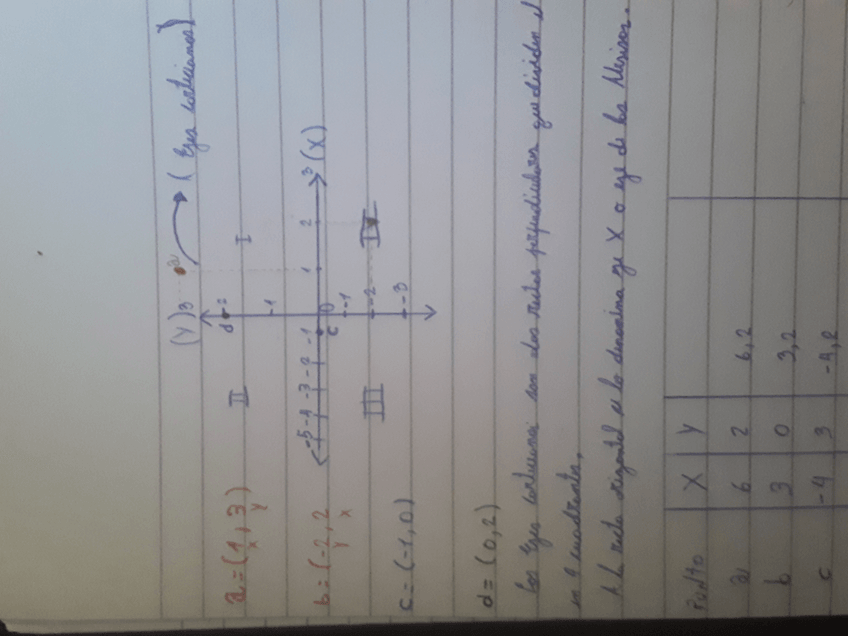 (Ejes cartecianos)
(Y) 3
a
d 2
II I
1
-5 -4 -3 -2 -1 0 1 2 3 (X)
c
-1
III -2 IV
-3
a = (1, 3)
x y
b = (-2, 2
y x
c = (-1, 0)
d = (0, 2)
Los Ejes cartecianos son dos rectas perpendiculares que dividen el
en 4 cuadrantes,
A la recta orizontal se lo denomina eje X o eje de las Abscisas.
PUNTO X Y
a 6 2 6,2
b 3 0 3,2
c -4 3 -4,2